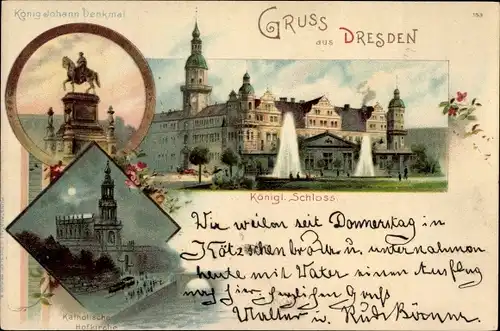 König Johann Denkmal
GRUSS
aus DRESDEN
153
Königl. Schloss
Katholische
Hofkirche
Wir weilen seit Donnerstag in
Kötzschenbroda u. unternahmen
heute mit Vater einen Ausflug
nach hier herzlichen Gruß
Walter u. Rudi